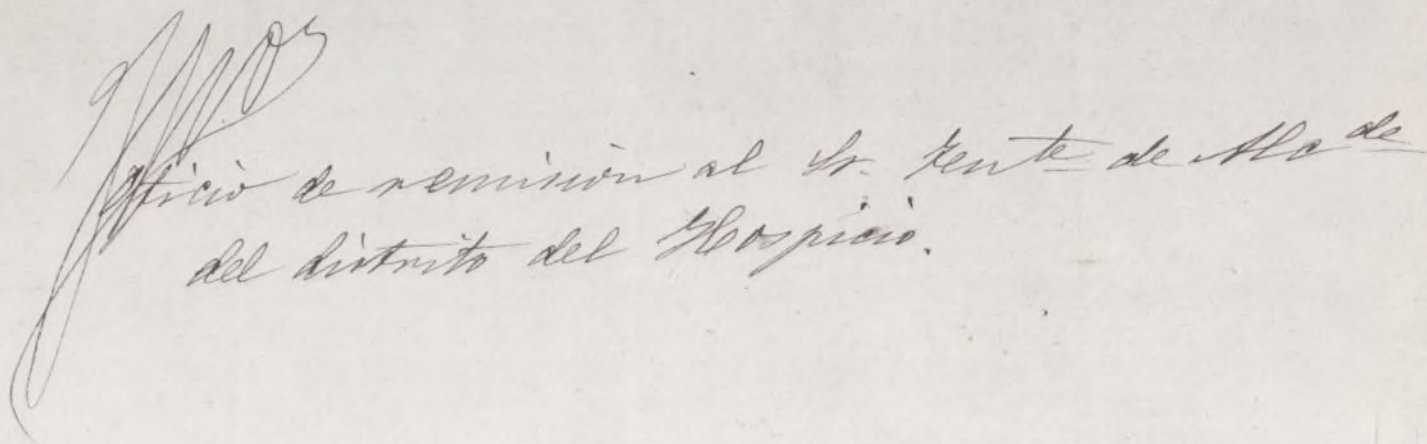 Oficio de remisión al Sr. Tente de Alcde
del distrito del Hospicio.